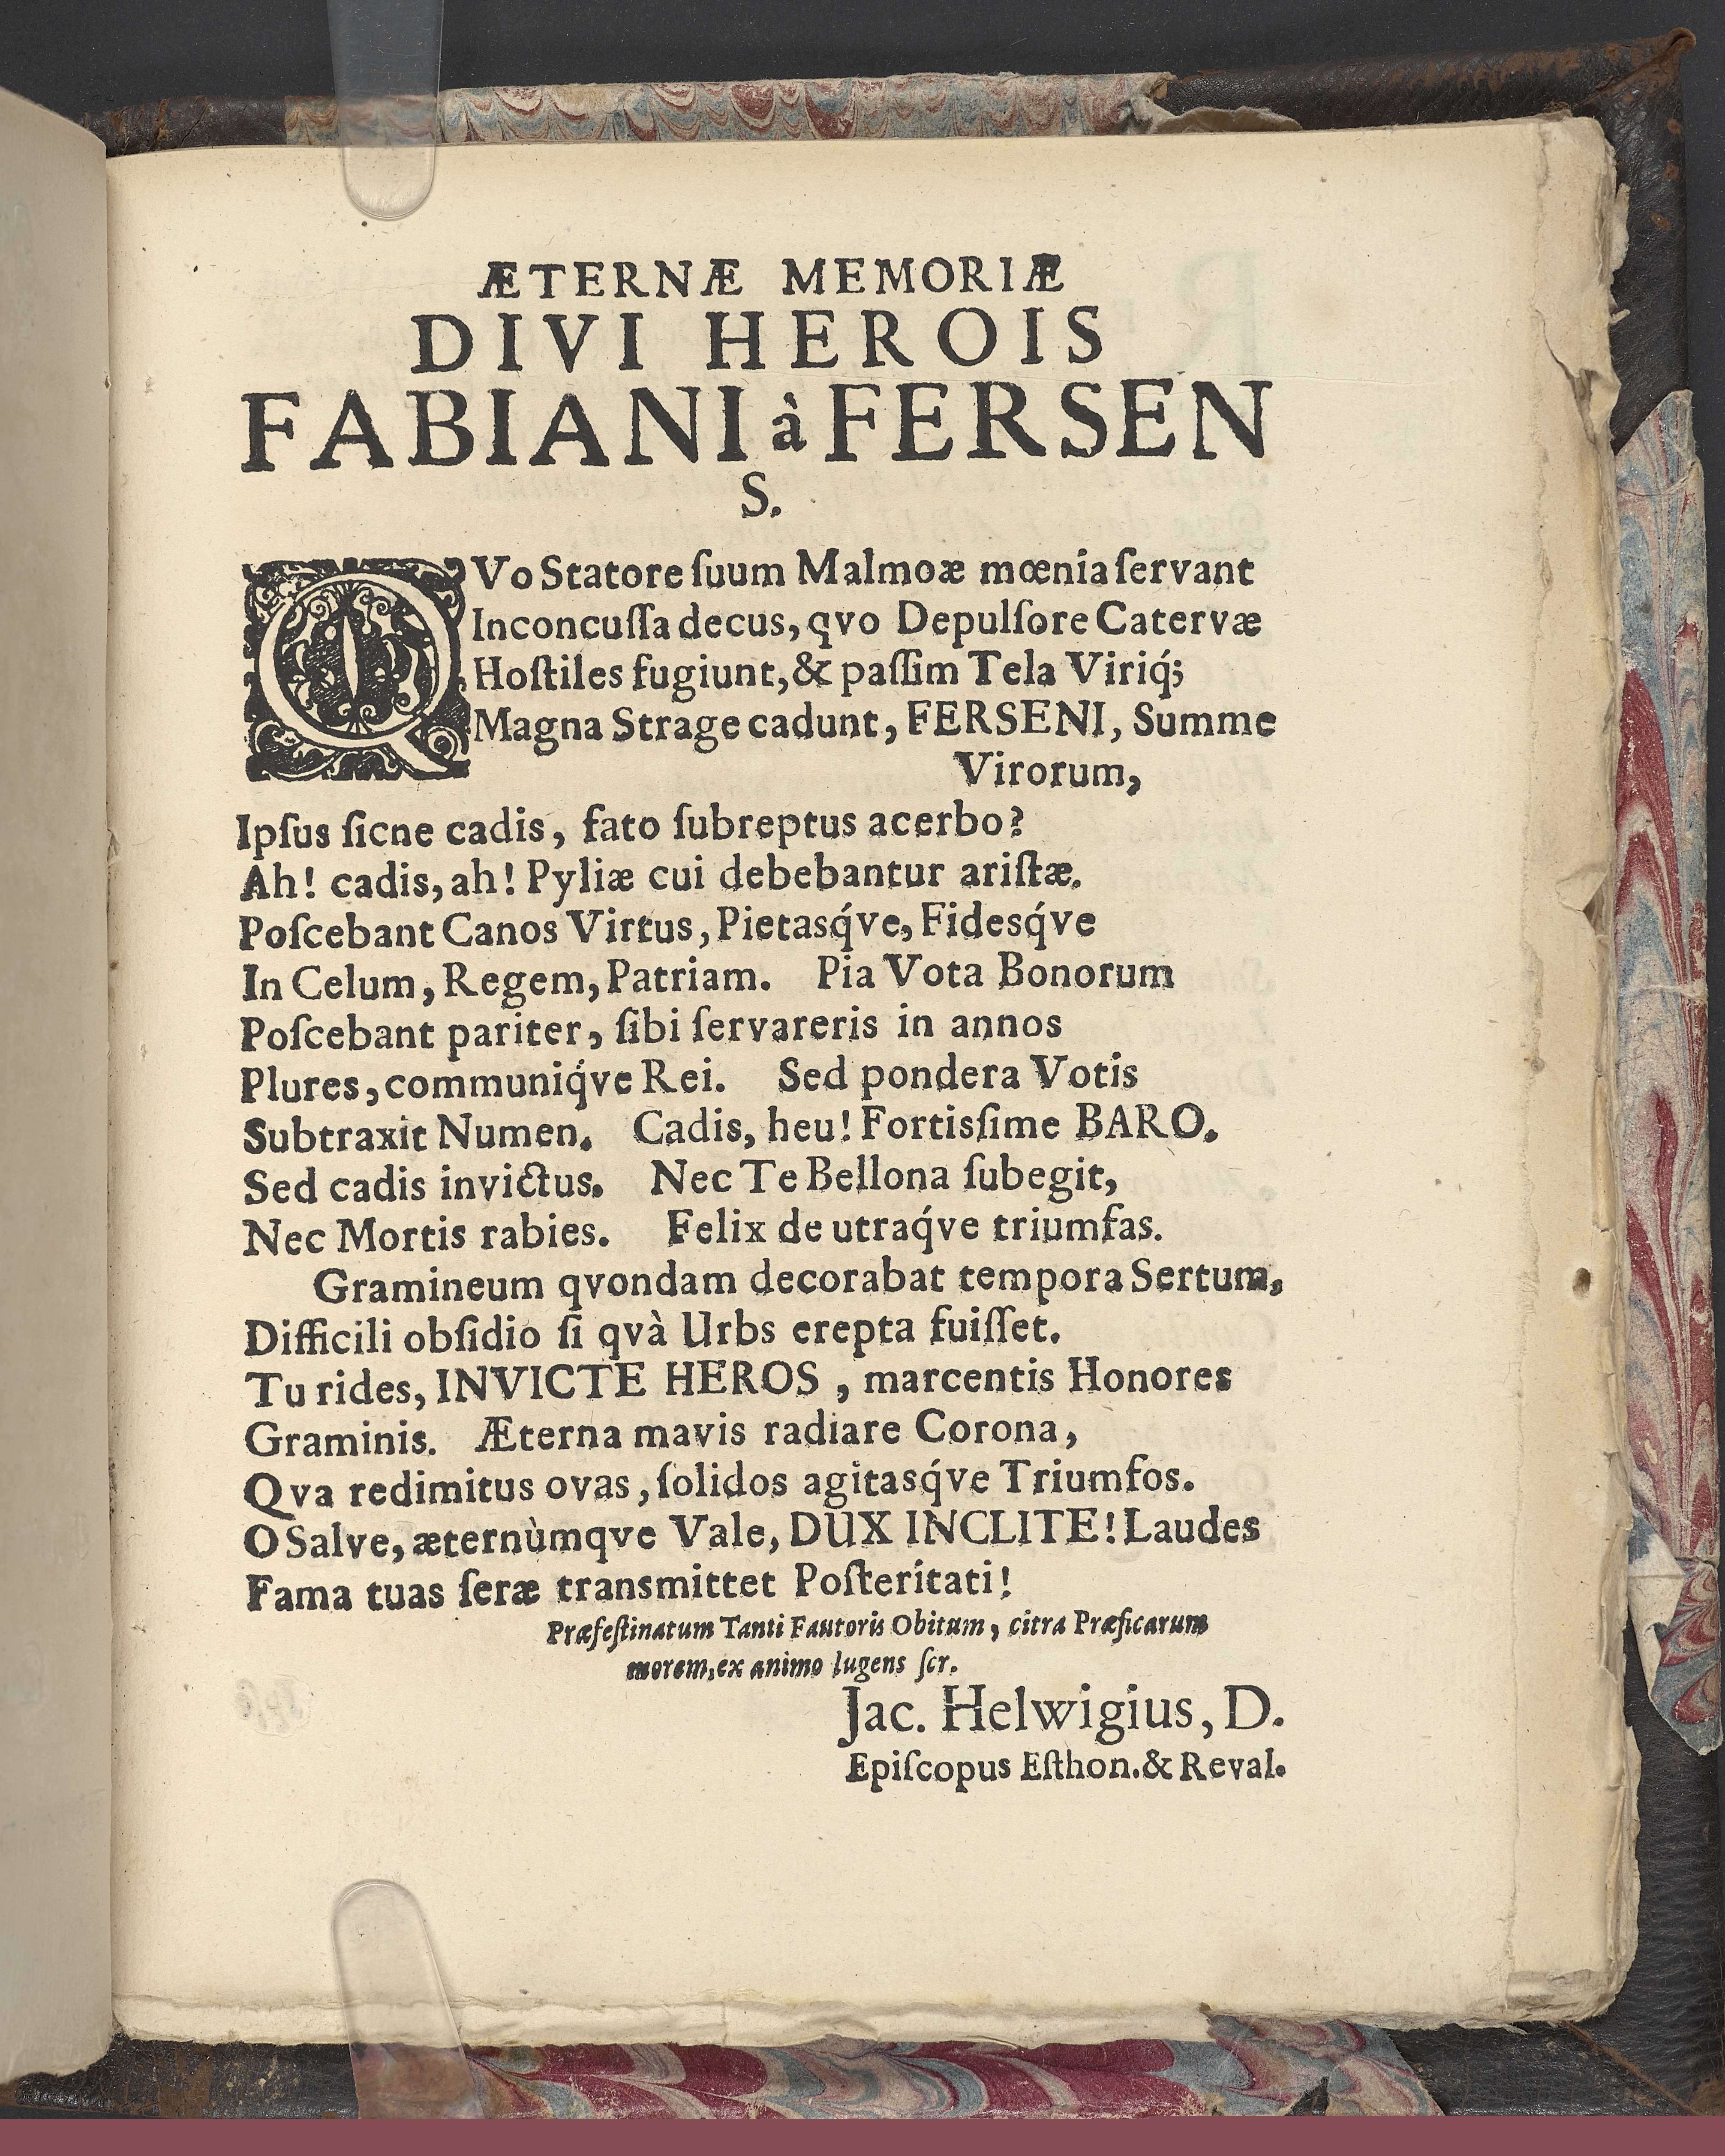 ÆTERNÆ MEMORIÆ
DIVI HEROIS
FABIANI à FERSEN
S.
QVo Statore ſuum Malmoæ mœnia ſervant
Inconcuſſa decus, qvo Depulſore Catervæ
Hoſtiles fugiunt, & paſſim Tela Viriq́;
Magna Strage cadunt, FERSENI, Summe
Virorum,
Ipſus ſicne cadis, fato ſubreptus acerbo?
Ah! cadis, ah! Pyliæ cui debebantur ariſtæ.
Poſcebant Canos Virtus, Pietasq́ve, Fidesq́ve
In Celum, Regem, Patriam. Pia Vota Bonorum
Poſcebant pariter, ſibi ſervareris in annos
Plures, communiq́ve Rei. Sed pondera Votis
Subtraxit Numen. Cadis, heu! Fortisſime BARO.
Sed cadis invictus. Nec Te Bellona ſubegit,
Nec Mortis rabies. Felix de utraq́ve triumfas.
Gramineum qvondam decorabat tempora Sertum,
Difficili obsidio ſi qvà Urbs erepta fuiſſet.
Tu rides, INVICTE HEROS, marcentis Honores
Graminis. Æterna mavis radiare Corona,
Qva redimitus ovas, ſolidos agitasq́ve Triumfos.
O Salve, æternùmqve Vale, DUX INCLITE! Laudes
Fama tuas ſeræ transmittet Poſteritati!
Præfeſtinatum Tanti Fautoris Obitum, citra Præficarum
morem, ex animo lugens ſcr.
Jac. Helwigius, D.
Epiſcopus Eſthon. & Reval.